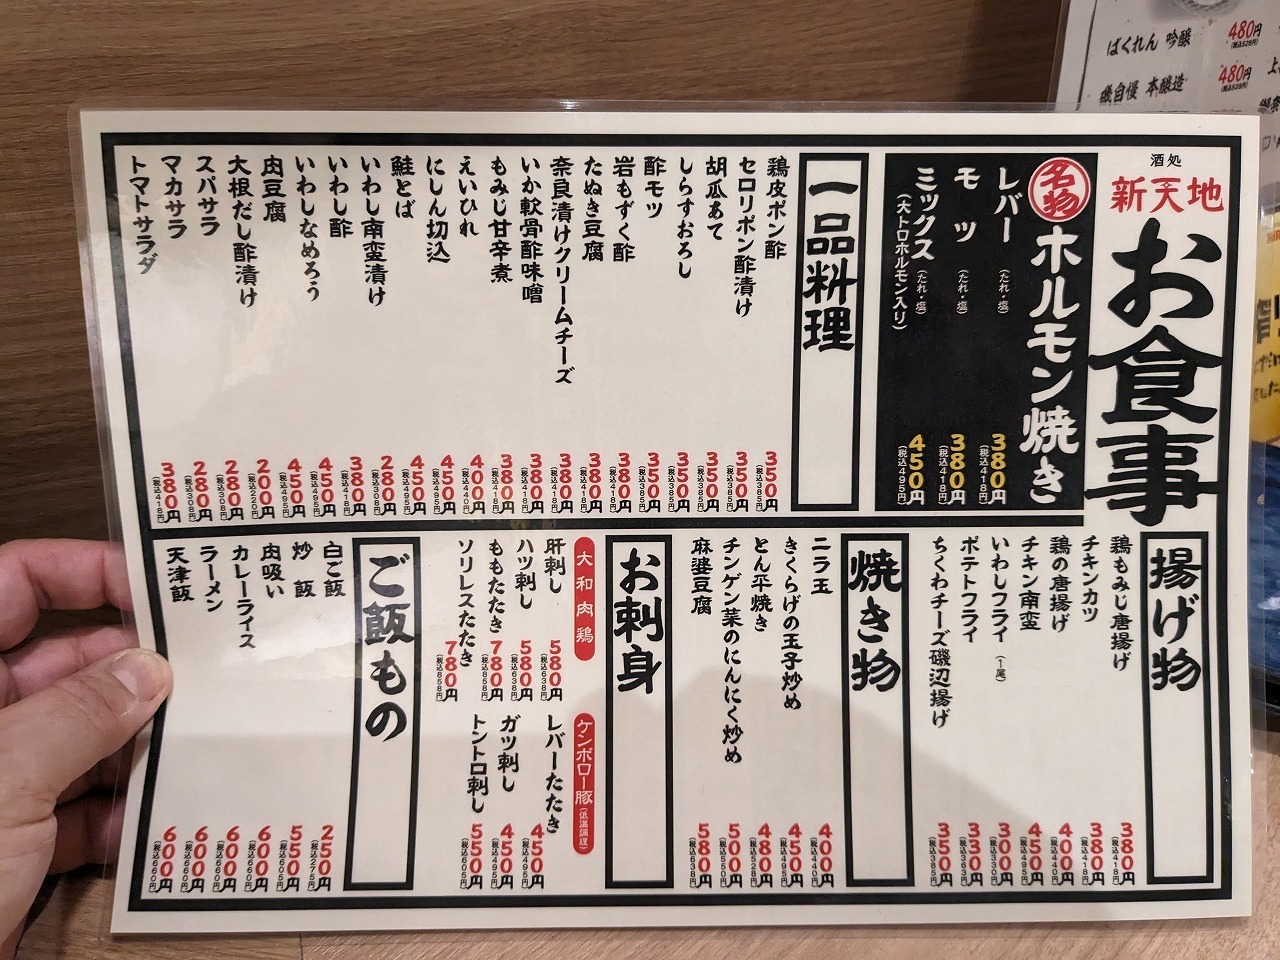 酒処
新天地
お食事
名物
ホルモン焼き
レバー (たれ・塩) 380円 (税込418円)
モツ (たれ・塩) 380円 (税込418円)
ミックス (たれ・塩) 450円 (税込495円)
(大トロホルモン入り)
一品料理
鶏皮ポン酢 350円 (税込385円)
セロリポン酢漬け 350円 (税込385円)
胡瓜あて 350円 (税込385円)
しらすおろし 350円 (税込385円)
酢モツ 350円 (税込385円)
岩もずく酢 380円 (税込418円)
たぬき豆腐 380円 (税込418円)
奈良漬けクリームチーズ 380円 (税込418円)
いか軟骨酢味噌 380円 (税込418円)
もみじ甘辛煮 380円 (税込418円)
えいひれ 400円 (税込440円)
にしん切込 450円 (税込495円)
鮭とば 450円 (税込495円)
いわし南蛮漬け 280円 (税込308円)
いわし酢 380円 (税込418円)
いわしなめろう 450円 (税込495円)
肉豆腐 450円 (税込495円)
大根だし酢漬け 200円 (税込220円)
スパサラ 280円 (税込308円)
マカサラ 280円 (税込308円)
トマトサラダ 380円 (税込418円)
揚げ物
鶏もみじ唐揚げ 380円 (税込418円)
チキンカツ 380円 (税込418円)
鶏の唐揚げ 400円 (税込440円)
チキン南蛮 450円 (税込495円)
いわしフライ (1尾) 300円 (税込330円)
ポテトフライ 330円 (税込363円)
ちくわチーズ磯辺揚げ 350円 (税込385円)
焼き物
ニラ玉 400円 (税込440円)
きくらげの玉子炒め 450円 (税込495円)
とん平焼き 480円 (税込528円)
チンゲン菜のにんにく炒め 500円 (税込550円)
麻婆豆腐 580円 (税込638円)
お刺身
大和肉鶏
肝刺し 580円 (税込638円)
ハツ刺し 580円 (税込638円)
ももたたき 780円 (税込858円)
ソリレスたたき 780円 (税込858円)
ケンボロー豚 (低温調理)
レバーたたき 450円 (税込495円)
ガツ刺し 450円 (税込495円)
トントロ刺し 550円 (税込605円)
ご飯もの
白ご飯 250円 (税込275円)
炒飯 550円 (税込605円)
肉吸い 600円 (税込660円)
カレーライス 600円 (税込660円)
ラーメン 600円 (税込660円)
天津飯 600円 (税込660円)
ばくれん 吟醸 480円 (税込528円)
磯自慢 本醸造 480円 (税込528円)